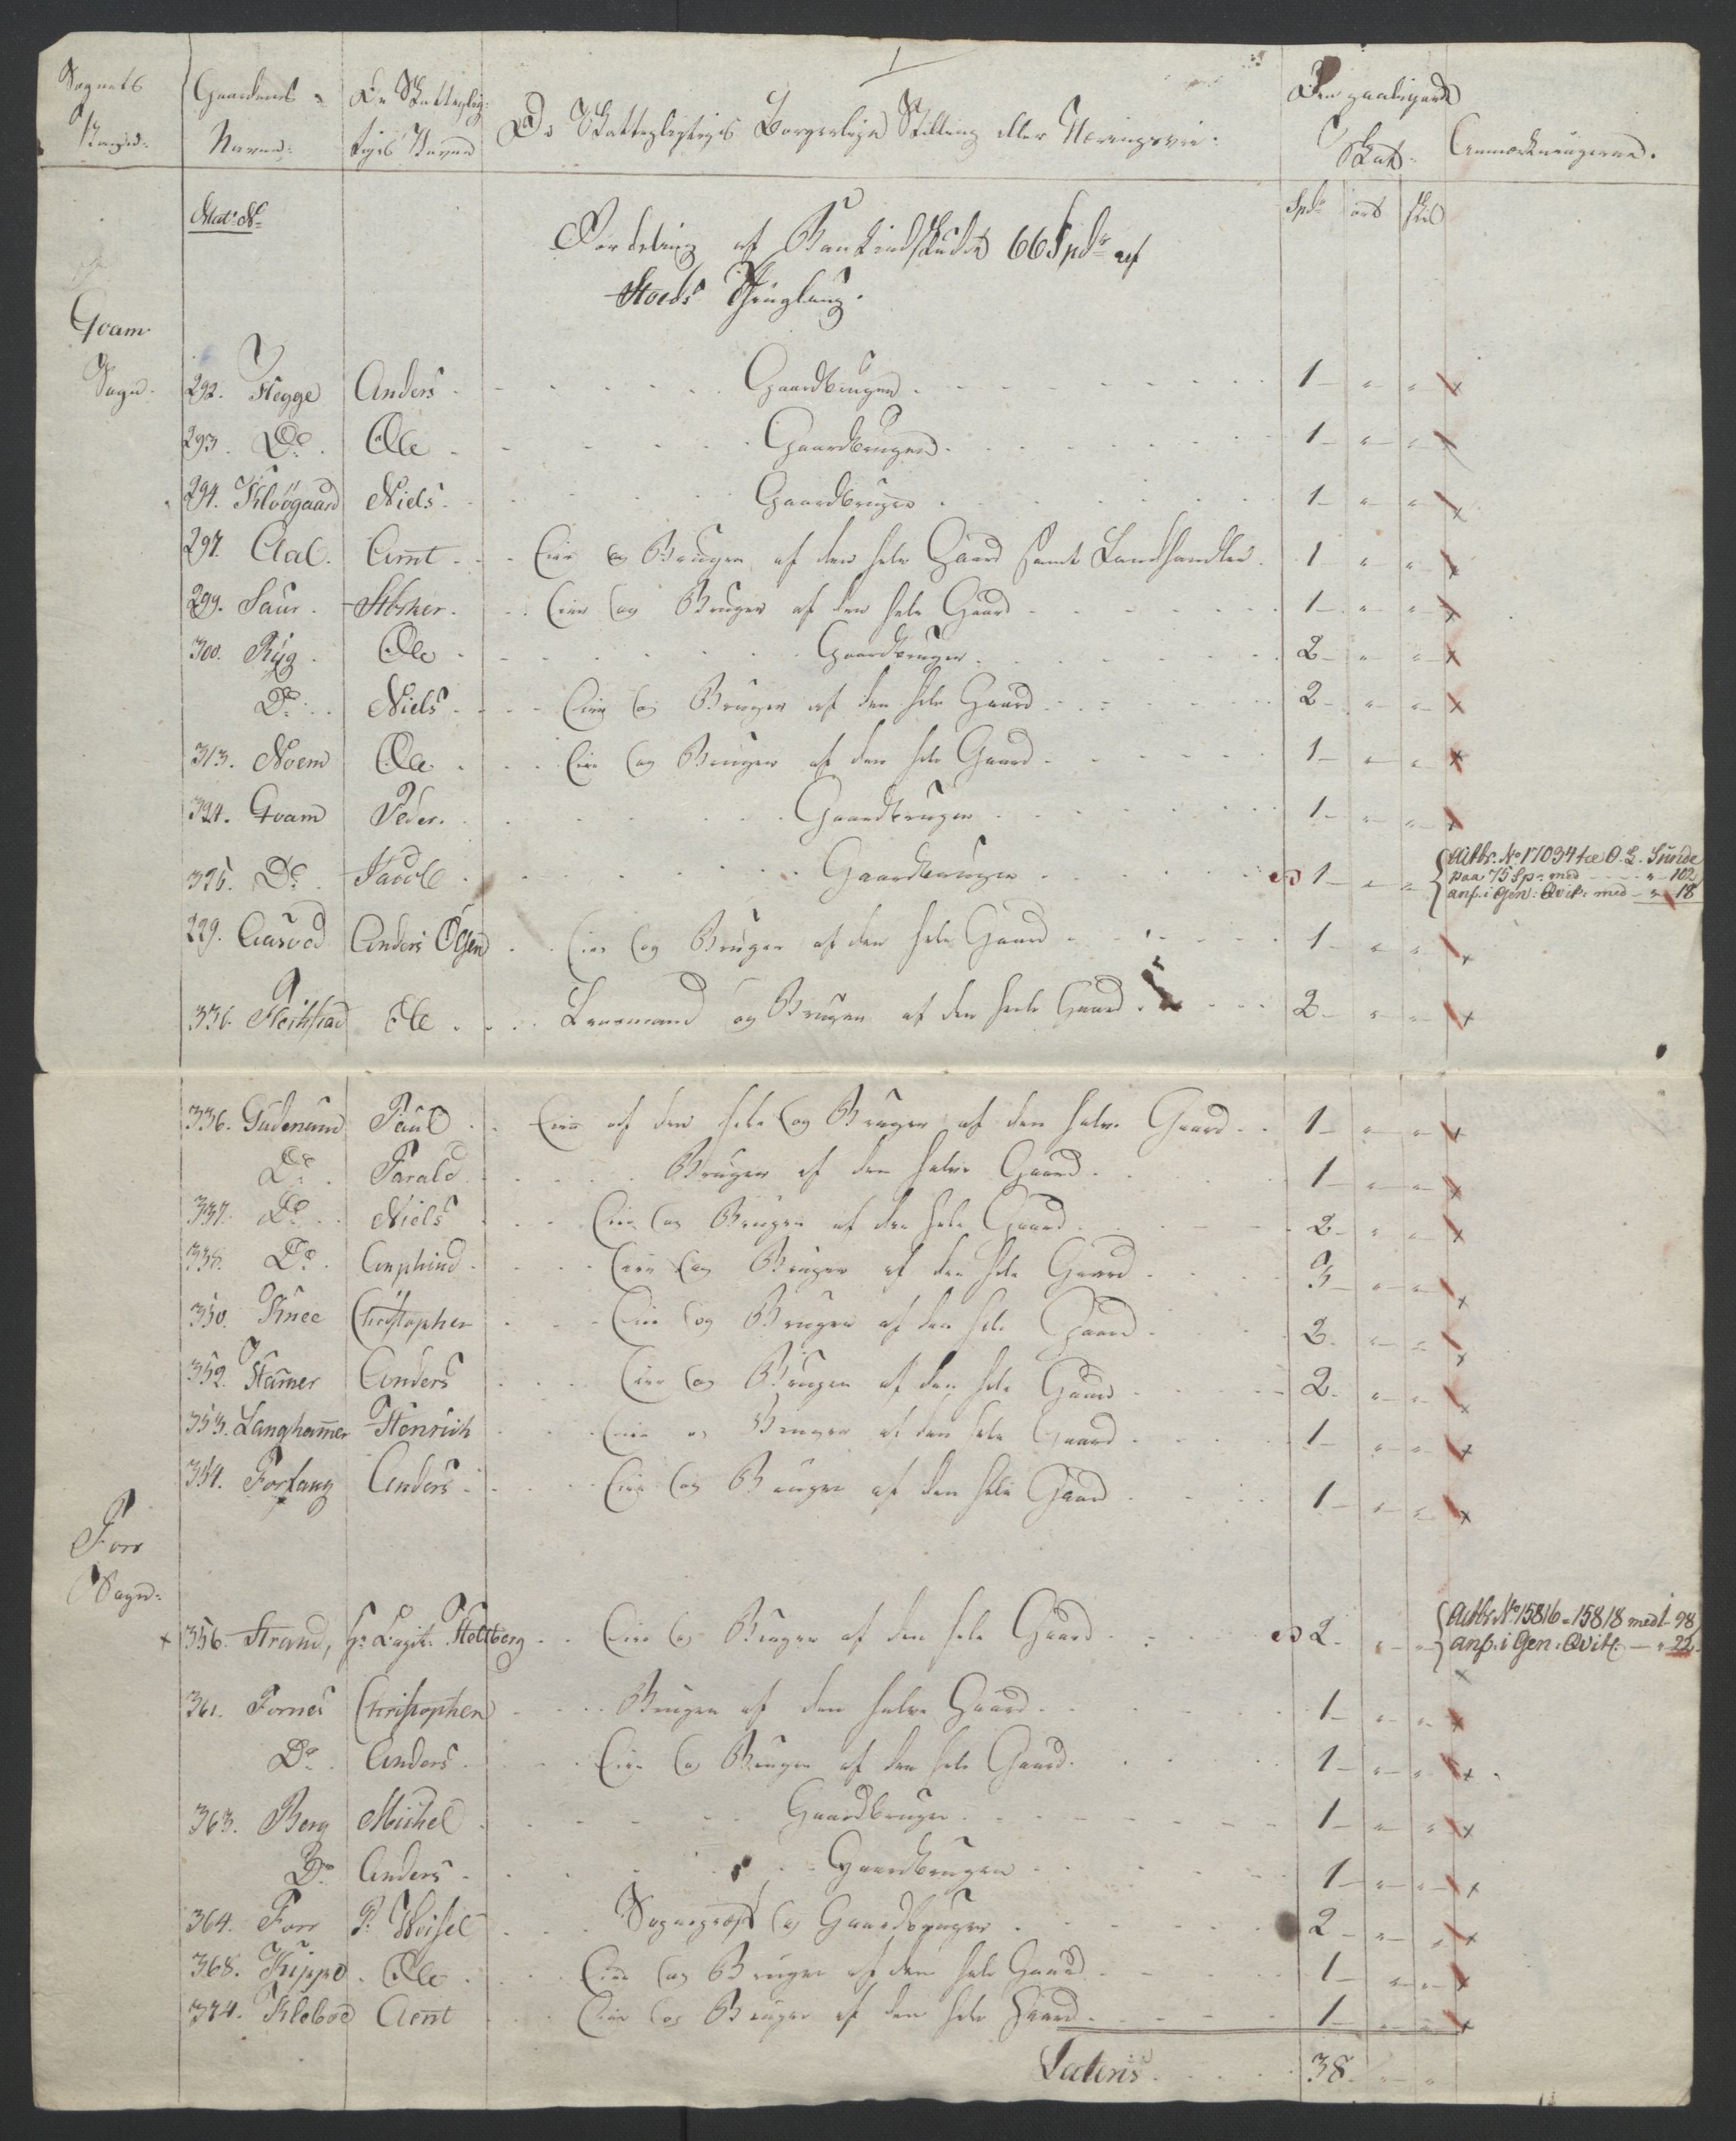 1
Sognets Navn. Gaardens Navn: De Skattepligtiges Navne De Skattepligtiges Borgerlige Stilling eller Næringsvei. Den paalignede Skat. Anmærkningerne.
Matr: No Spdr ort skl
Fordeling af 66 Spdr af
Stoeds Thinglaug.
Qvam
Sogn.
292. Hegge Anders - Gaardbruger. 1 " "
293. Do. Ole - Gaardbruger. 1 " "
294. Kloogaard Niels. Gaardbruger. 1 " "
297. Aal. Arnt. Eier og Bruger af den hele Gaard samt Landhandler. 1 " "
299. Saur. Eier og Bruger af den hele Gaard 1 " "
300. Ryg. Ole Gaardbruger. 2 " "
Do. Niels. Eier og Bruger af den hele Gaard 2 " "
313. Noem Ole. Eier og Bruger af den hele Gaard 1 " "
324. Qvam Peder. Gaardbruger 1 " "
325. Do. Jacob. Gaardbruger 1 " "
Aitbr. No 17034 O. L. Sunde
paa 75 Sp. med " 102
anf. i Gen: Qvit: med " 18
329. Aasved Anders Olsen Eier og Bruger af den hele Gaard 1 " "
336. Ole Lensmand og Bruger af den hele Gaard. 2 " "
336. Gudmund Paul Eier af den hele og Bruger af den halve Gaard 1 " "
Do. Tarald. Bruger af den halve Gaard. 1 " "
337. Do. Niels Eier og Bruger af den hele Gaard. 2 " "
338. Do. Anphind Eier og Bruger af den hele Gaard 3 " "
350. Knee Christopher Eier og Bruger af den hele Gaard 2 " "
352. Hamer Anders Eier og Bruger af den hele Gaard 2 " "
353. Langhamer Henrich Eier og Bruger af den hele Gaard 1 " "
354. Forfang Anders Eier og Bruger af den hele Gaard 1 " "
For
Sogn.
x 356. Strand, Hr Capit. Holtberg Eier og Bruger af den hele Gaard 2 " "
Aitbr. No 15816 = 15818 med 1 - 98
anf. i Gen: Qvit. - " 22
361. Fornes Christopher Bruger af den halve Gaard. 1 " "
Do. Anders. Eier og Bruger af den hele Gaard. 1 " "
363. Berg Michel Gaardbruger. 1 " "
Do Anders Gaardbruger 1 " "
364. For P. Weisel Sognepræst og Gaardbruger. 2 " "
368. Kippe. Ole Eier og Bruger af den hele Gaard 1 " "
374. Kleboe Arnt Eier og Bruger af den hele Gaard 1 " "
Lateris. 38. " "